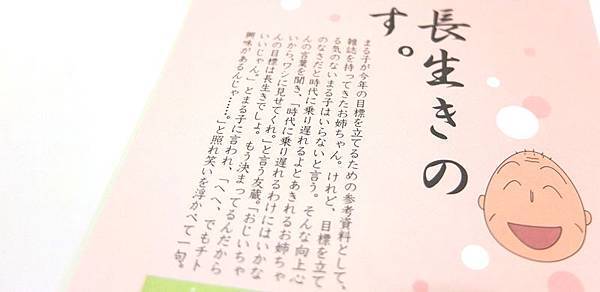 長生きの
す。
まる子が今年の目標を立てるための参考資料として、
雑誌を持ってきたお姉ちゃん。けれど、目標を立て
る気のないまる子はいらないと言う。そんな向上心
のなさだと時代に乗り遅れるよとあきれるお姉ちゃ
んの言葉を聞き、「時代に乗り遅れるわけにはいかな
いから、ワシに見せてくれ。」と言う友蔵。「おじいちゃ
んの目標は長生きでしょ。もう決まってるんだから
いいじゃん。」とまる子に言われ、「へへ、でもチト
興味があるんじゃ……。」と照れ笑いを浮かべて一句。